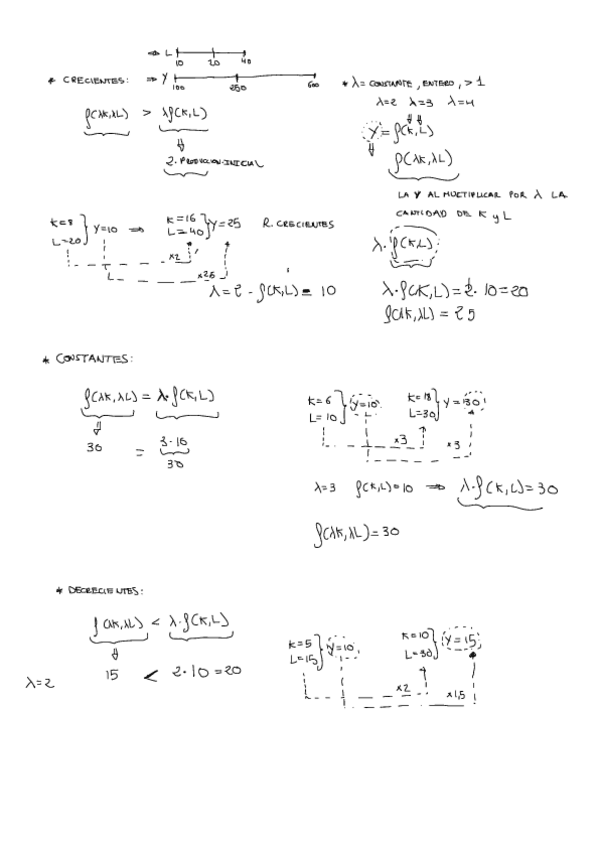 ⇒ L 10 20 40
* CRECIENTES: ⇒ Y 100 250 600
f(λK,λL) > λf(K,L)
⇓
2. PRODUCCION INICIAL
* λ = CONSTANTE, ENTERO, > 1
λ=2 λ=3 λ=4
⇓⇓
Y = f(K,L)
⇓ f(λK,λL)
LA Y AL MULTIPLICAR POR λ LA
CANTIDAD DE K y L
λ· f(K,L)
K=8 L=20 } Y=10 ⇒ K=16 L=40 } Y=25 R. CRECIENTES
x2
x25
λ=2 - f(K,L) = 10
λ·f(K,L) = 2·10=20
f(λK,λL) = 25
* CONSTANTES:
f(λK,λL) = λ·f(K,L)
⇓
30 = 3·10
30
K=6 L=10 } Y=10 K=18 L=30 } Y=30
x3 x3
λ=3 f(K,L)=10 ⇒ λ·f(K,L)=30
f(λK,λL)=30
* DECRECIENTES:
f(λK,λL) < λ·f(K,L)
⇓
λ=2 15 < 2·10=20
K=5 L=15 } Y=10 K=10 L=30 } Y=15
x2 x1,5